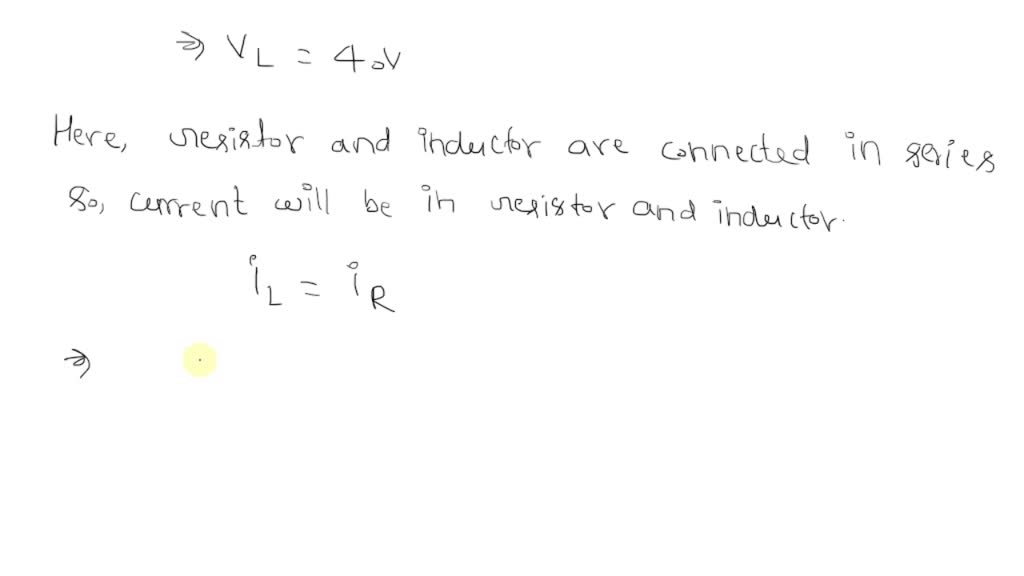 ⇒ V_L = 40V
Here, resistor and inductor are connected in series
So, current will be in resistor and inductor.
i_L = i_R
⇒